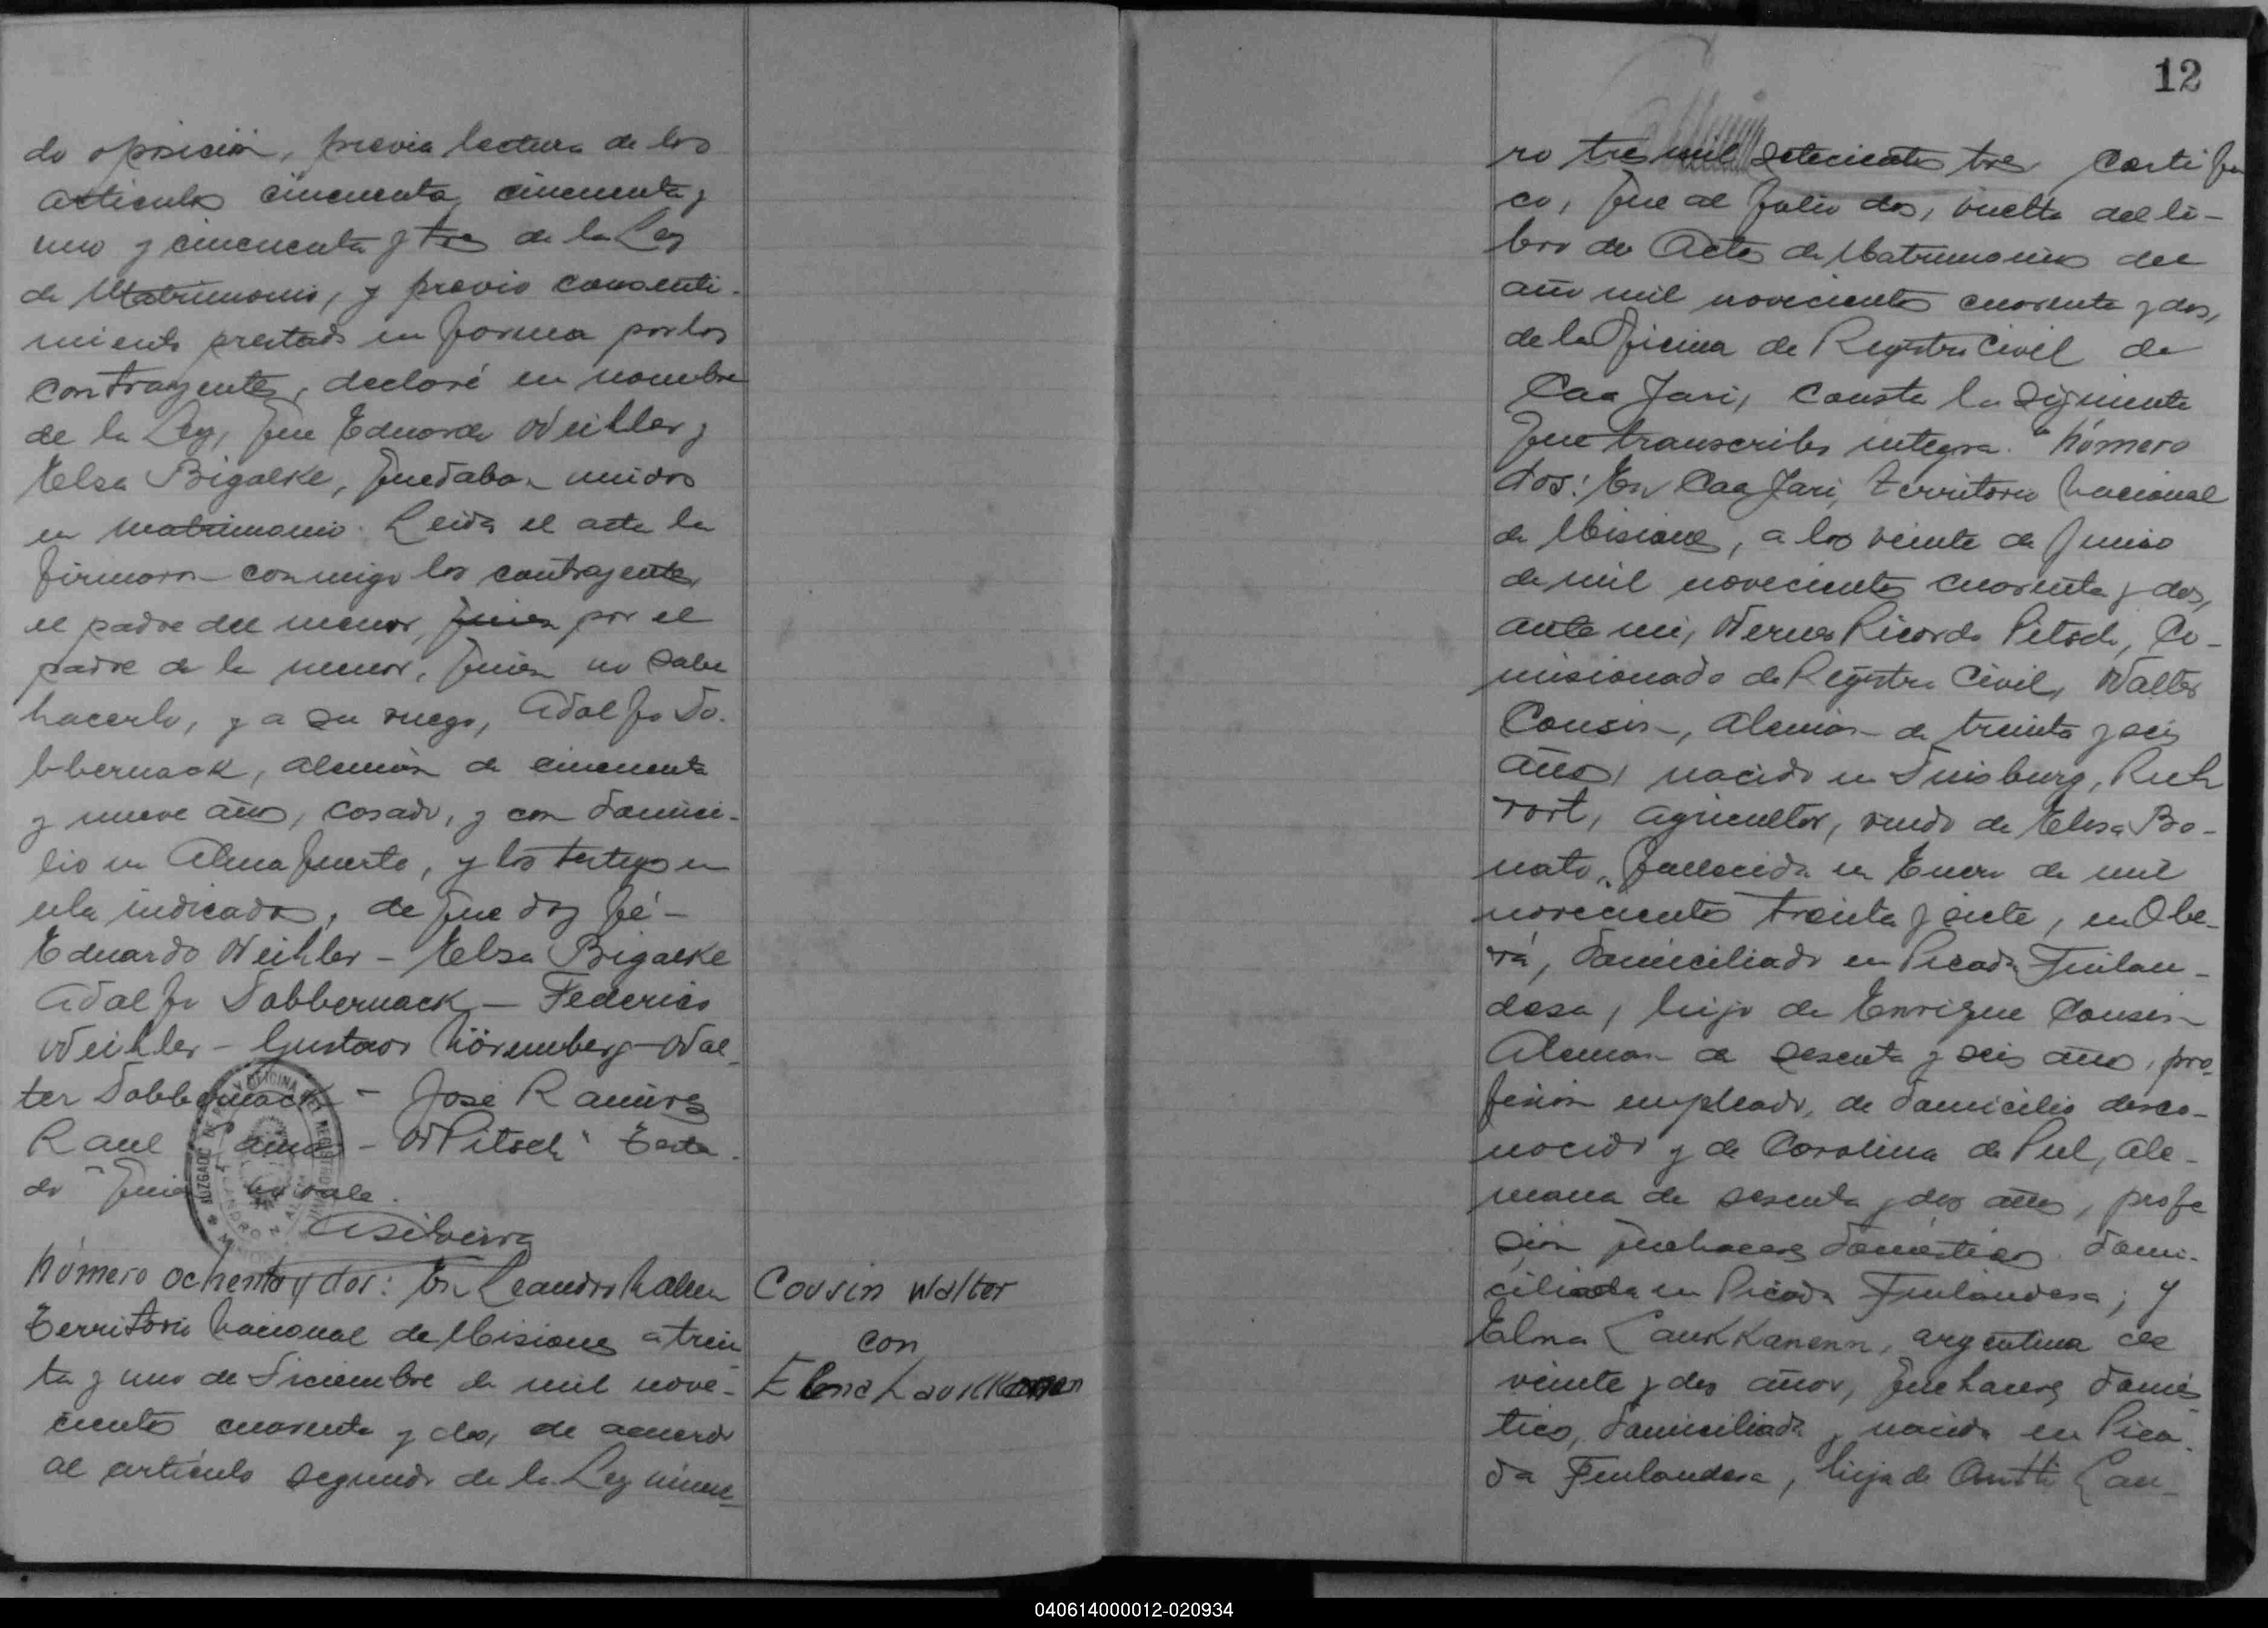 do oposición, previa lectura de los
articulos cincuenta, cincuenta y
uno y cincuenta y tres de la Ley
de Matrimonio, y previo consenti-
miento prestado en forma por los
contrayentes, declaré en nombre
de la Ley, que Eduardo Weihler y
Elsa Bigalke, quedaban unidos
en matrimonio. Leida el acta la
firmaron conmigo los contrayentes,
el padre del menor, quien por el
padre de la menor, quien no sabe
hacerlo, y a su ruego, Adolfo Do-
bbernack, aleman de cincuenta
y nueve años, casado, y con domici-
lio en Alma fuerte, y los testigos en
ella indicados, de que doy fé-
Eduardo Weihler - Elsa Bigalke
Adolfo Dobbernack - Federico
Weihler - Gustavo Nörenberg - Wal-
ter Dobbernack - José Ramirez
Raul - W Pitsch" Testa-
do "quien" no vale.
Número ochenta y dos: En Leandro N. Alem
Territorio Nacional de Misiones a trein-
ta y uno de Diciembre de mil nove-
cientos cuarenta y dos, de acuerdo
al articulo segundo de la Ley núme-
Cousin Walter
con
Elena Laukkanen
12
ro tres mil setecientos tres certifi
co, que al folio dos, vuelta del li-
bro de Actas de Matrimonios del
año mil novecientos cuarenta y dos,
de la Oficina de Registro Civil de
Caa Jari, consta la siguiente
que transcribo integra. "Número
dos: En Caa Jari, Territorio Nacional
de Misiones, a los veinte de Junio
de mil novecientos cuarenta y dos,
ante mi, Werner Ricardo Pitsch, Co-
misionado de Registro Civil, Walter
Cousin, aleman de treinta y seis
años, nacido en Duisburg, Ruh
rort, agricultor, viudo de Elsa Bo-
nato, fallecida en Enero de mil
novecientos treinta y siete, en Obe-
rá, domiciliado en Picada Finlan-
desa, hijo de Enrique Cousin
Aleman de sesenta y seis años, pro-
fesion empleado, de domicilio desco-
nocido y de Carolina de Pul, ale-
mana de sesenta y dos años, profe
sion quehaceres domesticos domi-
ciliada en Picada Finlandesa; y
Elma Laukkanenn, argentina de
veinte y dos años, quehaceres domes-
ticos, domiciliada y nacida en Pica-
da Finlandesa, hija de Antti Lau-
040614000012-020934